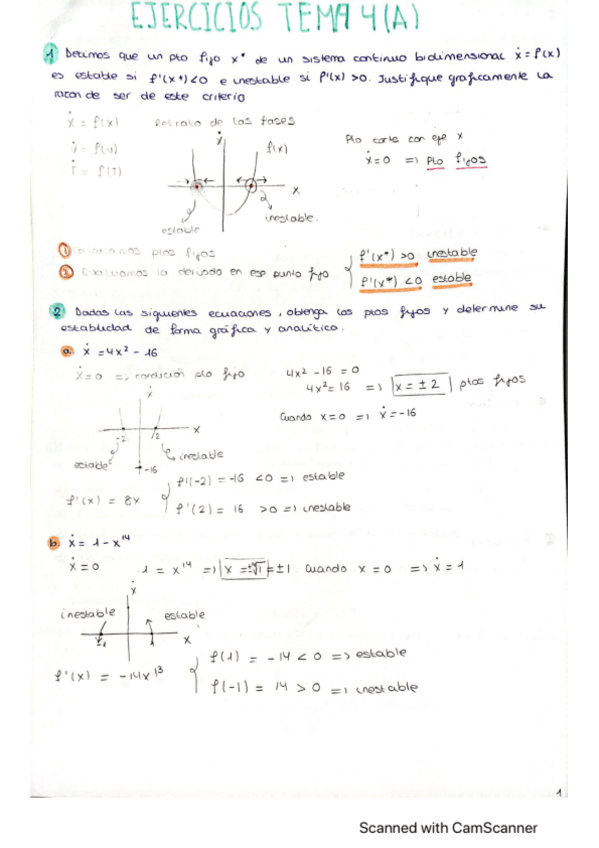 EJERCICIOS TEMA 4(A)
1 Decimos que un pto fijo x* de un sistema continuo bidimensional ẋ = f(x)
es estable si f'(x*)<0 e inestable si f'(x)>0. Justifique graficamente la
razon de ser de este criterio
ẋ = f(x) Retrato de las fases
ẋ f(x)
Pto corte con eje x
ẋ=0 => Pto fijos
x
estable inestable.
1 ptos fijos
2 Evaluamos la derivada en ese punto fijo
f'(x*) >0 inestable
f'(x*) <0 estable
2 Dadas las siguientes ecuaciones, obtenga los ptos fijos y determine su
estabilidad de forma gráfica y analítico.
a ẋ = 4x² - 16
ẋ=0 => condición pto fijo
4x² - 16 = 0
4x² = 16 => x = ± 2 ptos fijos
Cuando x=0 => ẋ=-16
ẋ
-2 2 x
estable -16 inestable
f'(x) = 8x
f'(-2) = -16 <0 => estable
f'(2) = 16 >0 => inestable
b ẋ = 1 - x¹⁴
ẋ = 0 1 = x¹⁴ => x = ±¹⁴√1 = ±1 Cuando x = 0 => ẋ = 1
ẋ
inestable estable
-1 1 x
f'(x) = -14x¹³
f(1) = -14 < 0 => estable
f(-1) = 14 > 0 => inestable
1
Scanned with CamScanner